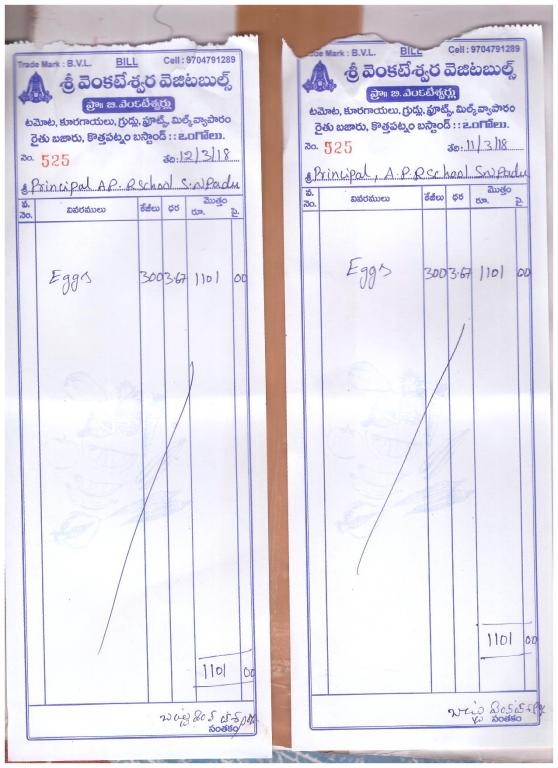 Trade Mark : B.V.L. BILL Cell : 9704791289
శ్రీ వెంకటేశ్వర వెజిటబుల్స్
ప్రొ॥ బి.వెంకటేశ్వర్లు
టమోట, కూరగాయలు, గ్రుడ్లు, ఫ్రూట్స్, మిల్క్ వ్యాపారం
రైతు బజారు, కొత్తపట్నం బస్టాండ్ : : ఒంగోలు.
నెం. 525 తేది: 12/3/18
శ్రీ Principal A.P. R School S.N Padu
వ. నెం. వివరములు కేజీలు ధర మొత్తం రూ. పై.
Eggs 300 3.67 1101 00
1101 00
సంతకం
Trade Mark : B.V.L. BILL Cell : 9704791289
శ్రీ వెంకటేశ్వర వెజిటబుల్స్
ప్రొ॥ బి.వెంకటేశ్వర్లు
టమోట, కూరగాయలు, గ్రుడ్లు, ఫ్రూట్స్, మిల్క్ వ్యాపారం
రైతు బజారు, కొత్తపట్నం బస్టాండ్ : : ఒంగోలు.
నెం. 525 తేది: 11/3/18
శ్రీ Principal, A.P.R School S.N Padu
వ. నెం. వివరములు కేజీలు ధర మొత్తం రూ. పై.
Eggs 300 3.67 1101 00
1101 00
సంతకం